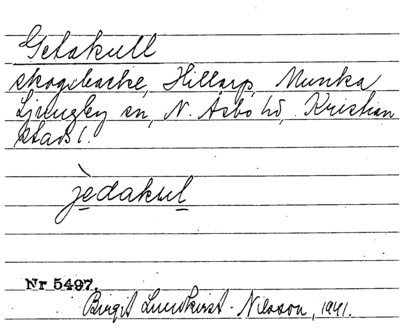 Getakull
skogsbacke, Hillarp, Munka
Ljungby sn, N. Åsbo hd, Kristian
stads l.
jedakul
Nr 5497.
Birgit Lundkvist-Nilsson, 1941.